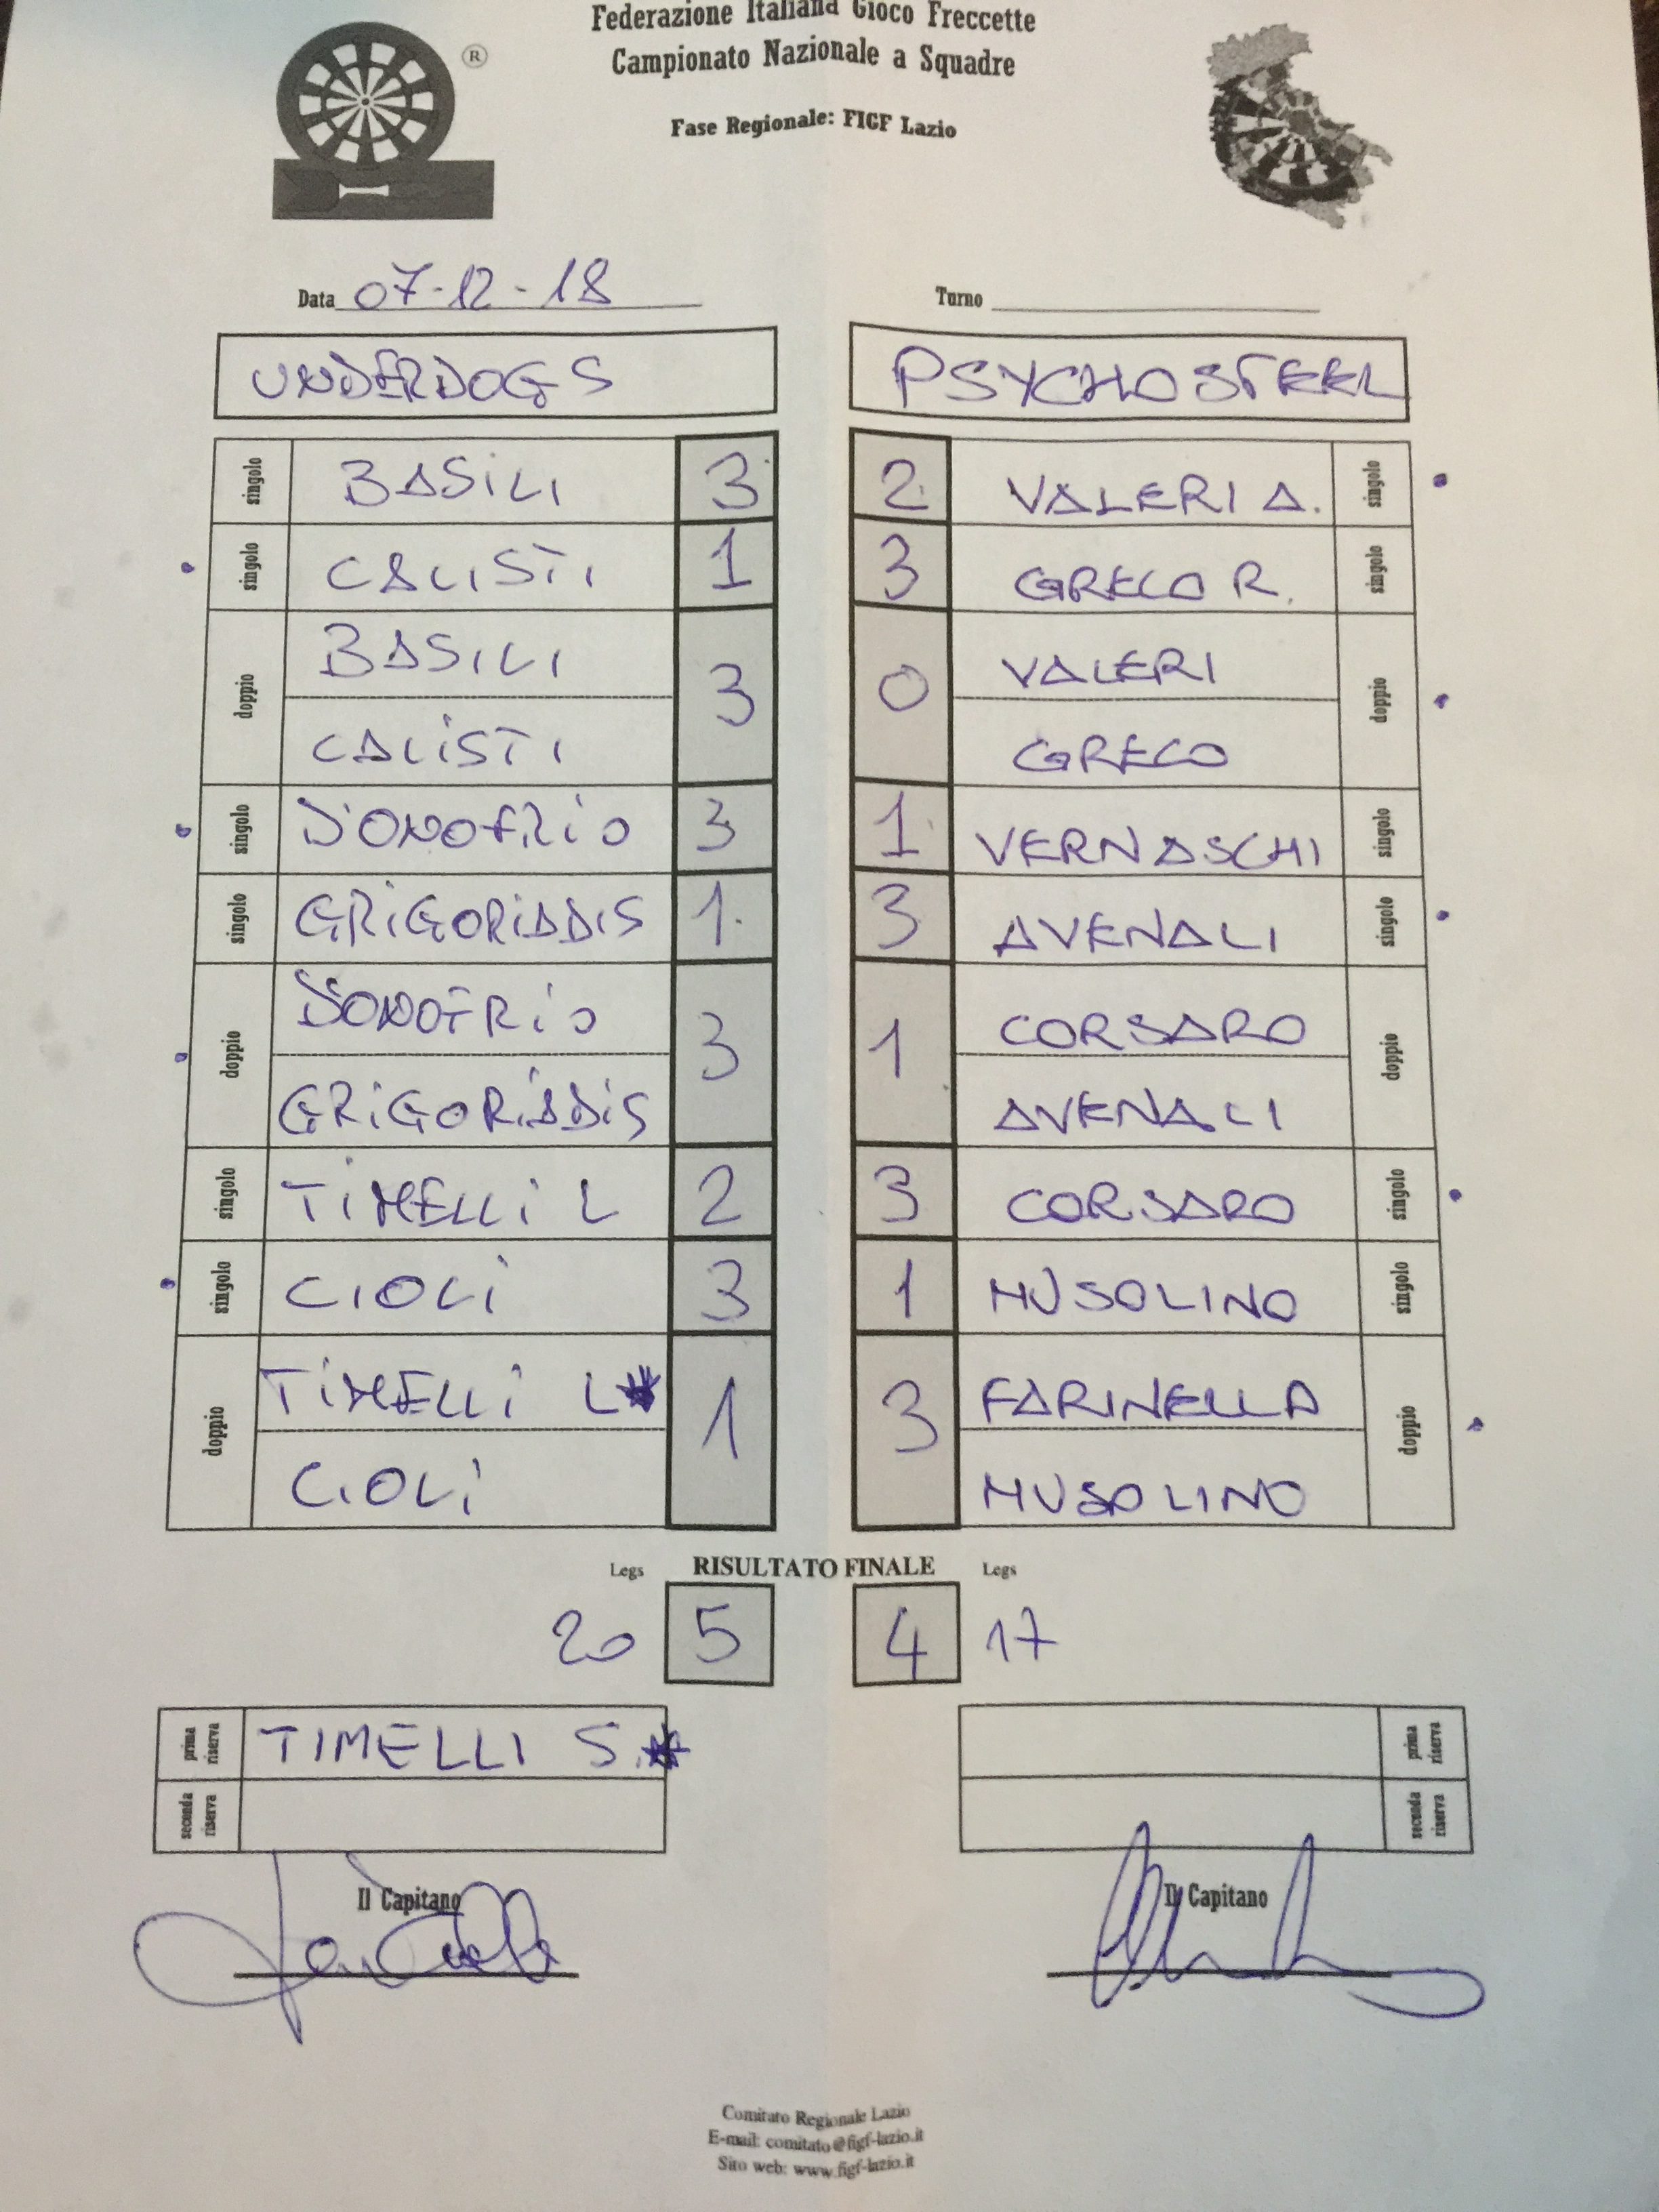 Federazione Italiana Gioco Freccette
Campionato Nazionale a Squadre
Fase Regionale: FIGF Lazio
®
Data 07-12-18 Turno
UNDERDOGS PSYCHOSTEEL
singolo BASILI 3 2 VALERI A. singolo
singolo CALISTI 1 3 GRECO R. singolo
doppio BASILI 3 0 VALERI doppio
CALISTI GRECO
singolo D'ONOFRIO 3 1 VERNASCHI singolo
singolo GRIGORIADIS 1 3 AVENALI singolo
doppio D'ONOFRIO 3 1 CORSARO doppio
GRIGORIADIS AVENALI
singolo TIMELLI L 2 3 CORSARO singolo
singolo CIOLI 3 1 MUSOLINO singolo
doppio TIMELLI L* 1 3 FARINELLA doppio
CIOLI MUSOLINO
Legs RISULTATO FINALE Legs
20 5 4 17
prima riserva TIMELLI S.* prima riserva
seconda riserva seconda riserva
Il Capitano Il Capitano
Comitato Regionale Lazio
E-mail: comitato@figf-lazio.it
Sito web: www.figf-lazio.it